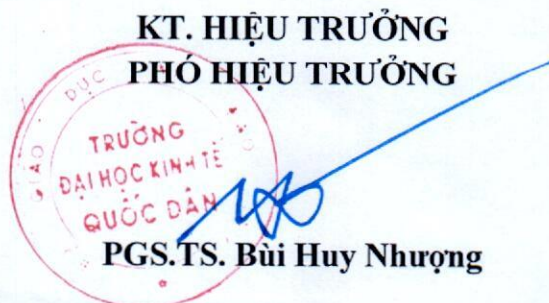 KT. HIỆU TRƯỞNG
PHÓ HIỆU TRƯỞNG
GIÁO DỤC
TRƯỜNG
ĐẠI HỌC KINH TẾ
QUỐC DÂN
PGS.TS. Bùi Huy Nhượng